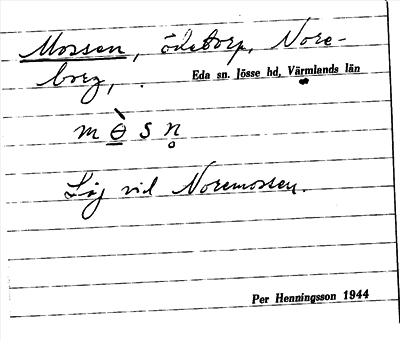 Mossen, ödetorp, Nore-
borg, . Eda sn. Jösse hd, Värmlands län
m ɵ̠̀ s n̥
Låg vid Noremossen.
Per Henningsson 1944